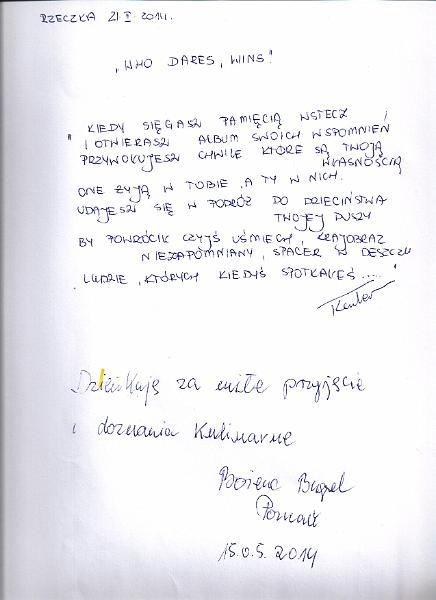 RZECZKA 21.I.2014.
"WHO DARES, WINS!"
" KIEDY SIĘGASZ PAMIĘCIĄ WSTECZ
I OTWIERASZ ALBUM SWOICH WSPOMNIEŃ
PRZYWOŁUJESZ CHWILE KTÓRE SĄ TWOJĄ
WŁASNOŚCIĄ
ONE ŻYJĄ W TOBIE, A TY W NICH.
UDAJESZ SIĘ W PODRÓŻ DO DZIECIŃSTWA
TWOJEJ DUSZY
BY POWRÓCIĆ CZYJŚ UŚMIECH, KRAJOBRAZ
NIEZAPOMNIANY, SPACER W DESZCZU
LUDZIE, KTÓRYCH KIEDYŚ SPOTKAŁEŚ ....."
Dziękuję za miłe przyjęcie
i doznania kulinarne
Bożena
15.0.5.2014